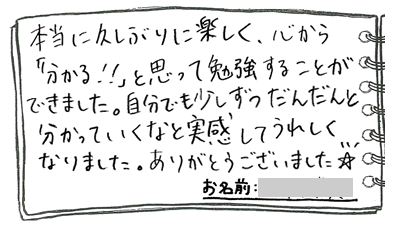 本当に久しぶりに楽しく、心から
「分かる!!」と思って勉強することが
できました。自分でも少しずつだんだんと
分かっていくなと実感してうれしく
なりました。ありがとうございました☆
お名前: